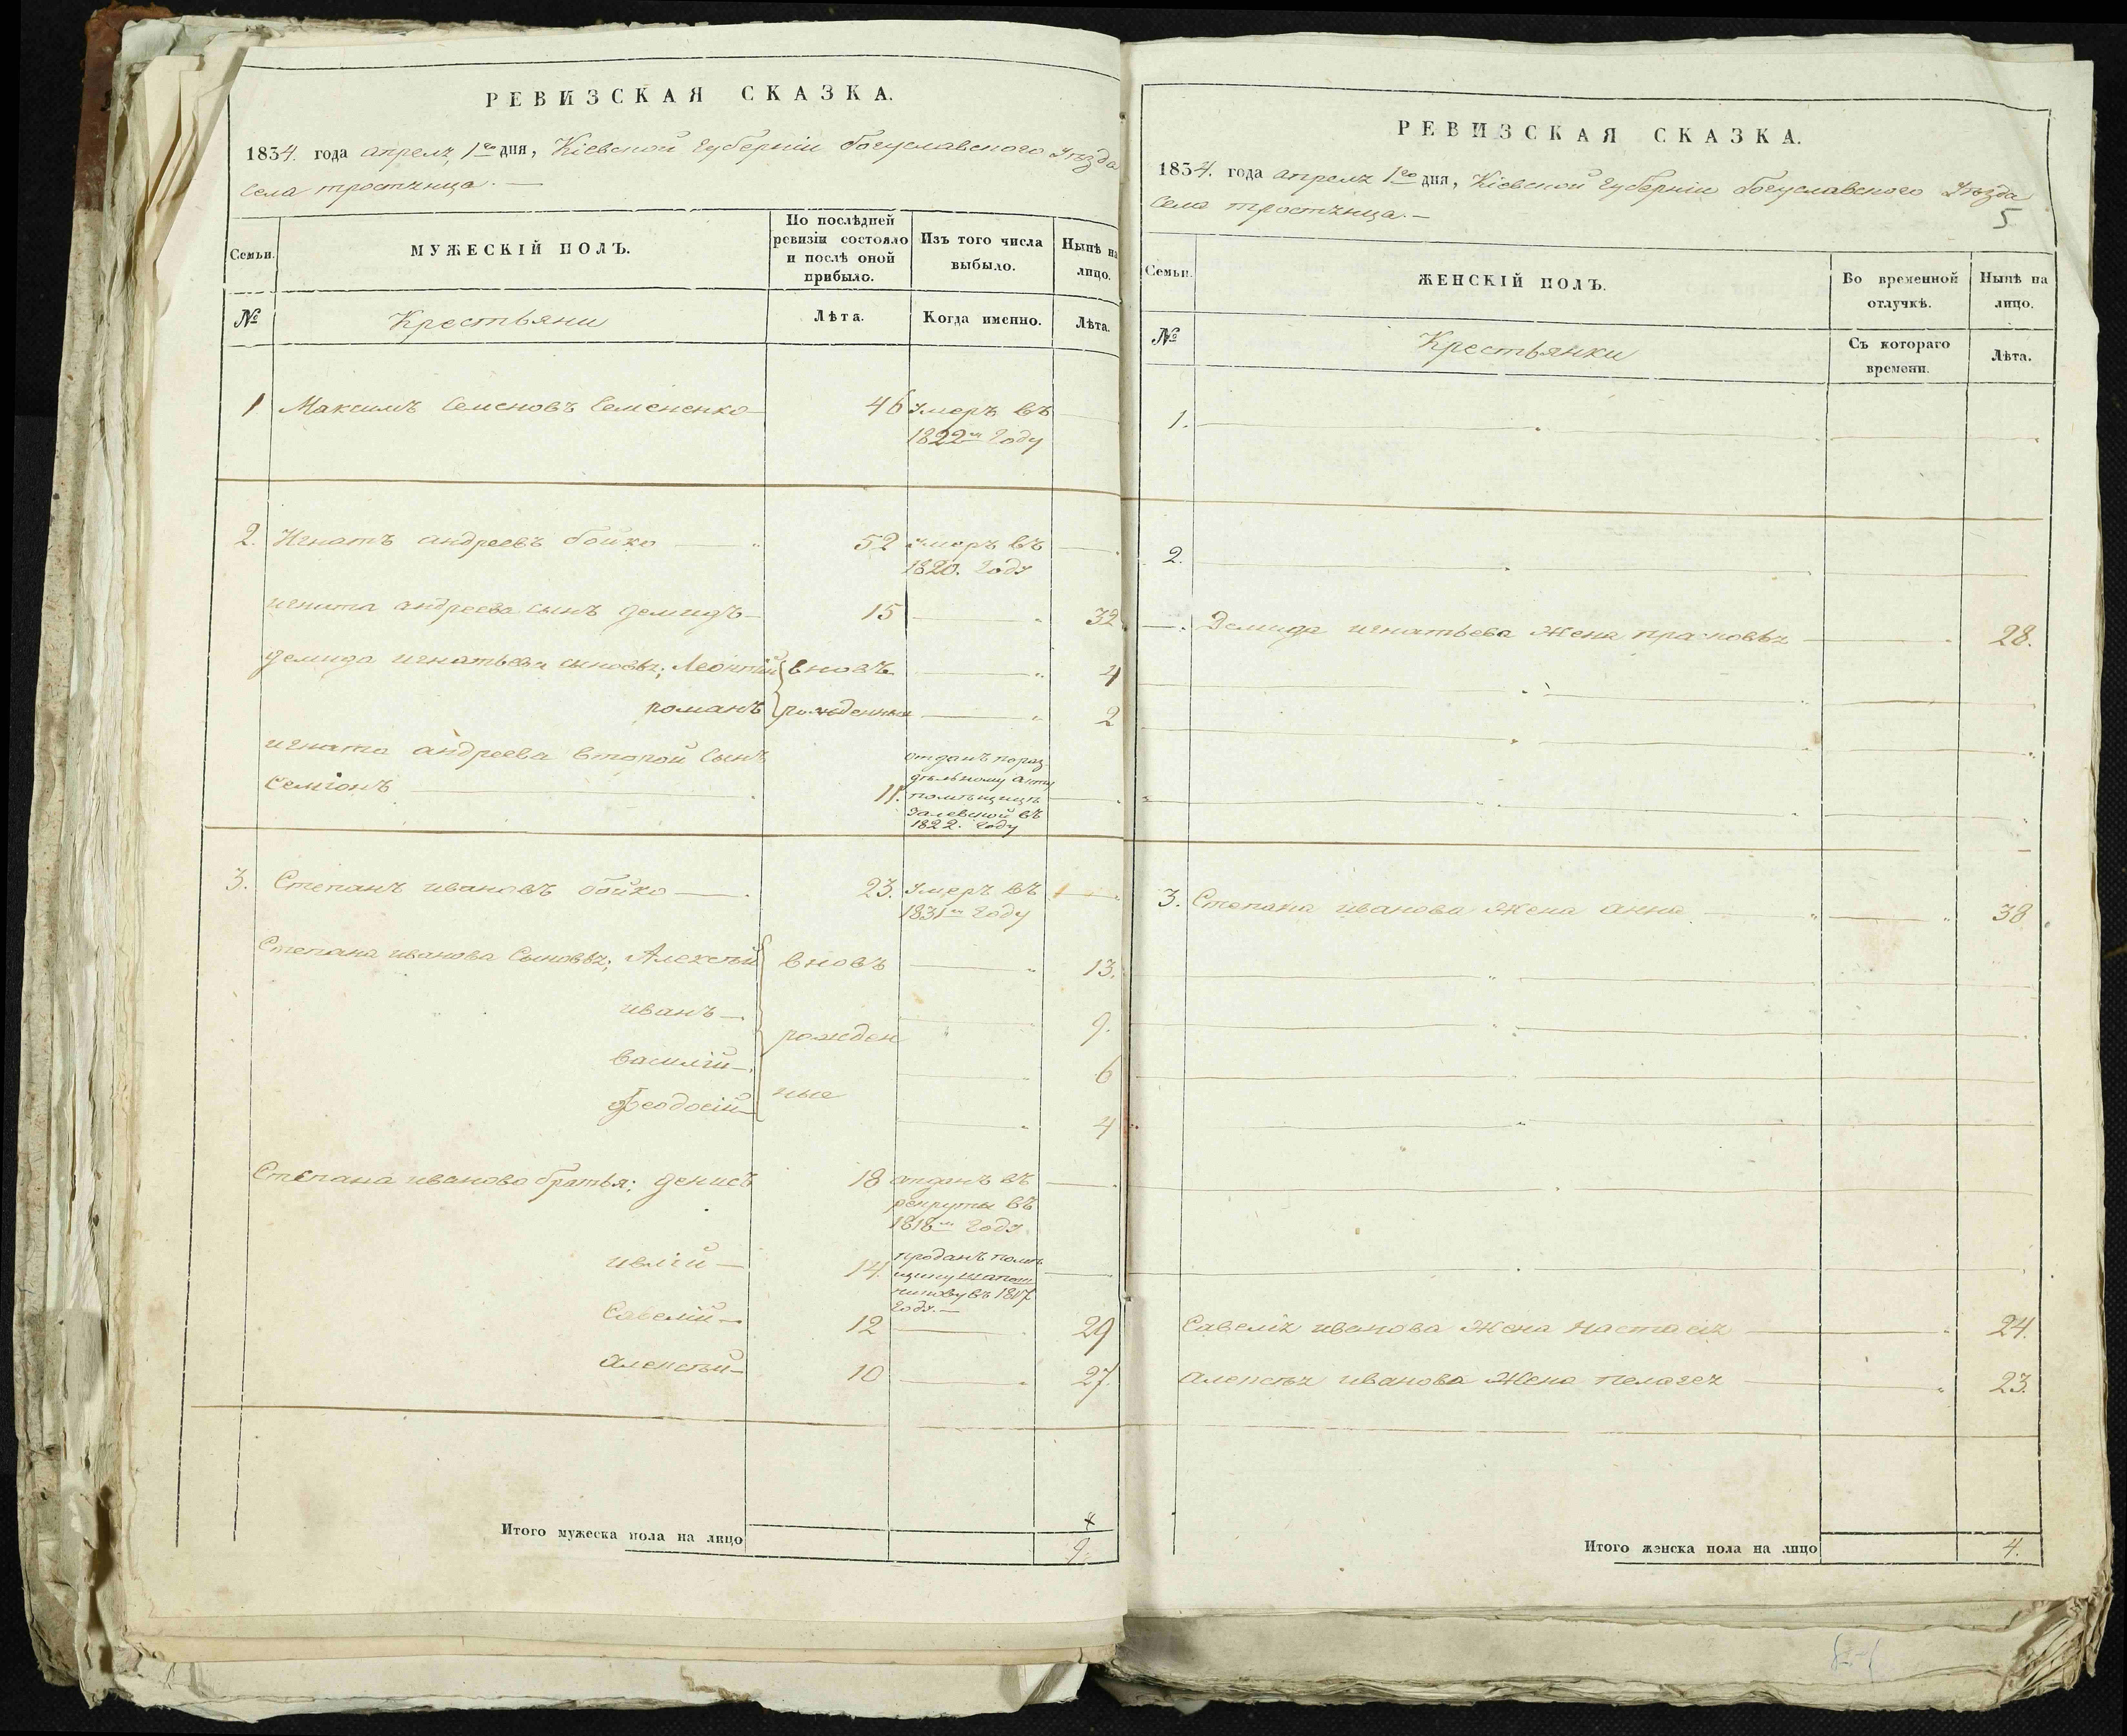 РЕВИЗСКАЯ СКАЗКА.
1834. года апреля 1го дня, Кіевской Губерніи богуславского Уезда
Села тростинца.—
Семьи.
МУЖЕСКІЙ ПОЛЪ.
По послѣдней ревизіи состояло и послѣ оной прибыло.
Изъ того числа выбыло.
Нынѣ на лицо.
№
Крестьяни
Лѣта.
Когда именно.
Лѣта.
1 Максимъ Семеновъ Семененко 46 Умеръ въ
1822м Году
2. Игнатъ андреевъ бойко 52 Умеръ въ
1820. Году
игната андреева сынъ демидъ 15 32
демида игнатьева сыновья; Леонтій вновъ 4
романъ рожденныя 2
игната андреева второй Сынъ
Семіонъ 11. отданъ по раз
дѣльному акту
помѣщицѣ
Залевской въ
1822. Году
3. Степанъ ивановъ бойко 23. Умеръ въ
1831м Году
Степана иванова Сыновья; Алексѣй вновъ 13.
иванъ 9.
рожден
василій 6
ные
феодосій 4
Степана иванова братья; денисъ 18 отданъ въ
рекруты въ
1818м Году
илій 14. проданъ помѣ
щику
въ 1817
Году.—
Савелій 12 29
алексѣй 10 27.
Итого мужеска пола на лицо 9.
РЕВИЗСКАЯ СКАЗКА.
1834. года апреля 1го дня, Кіевской Губерніи богуславского Уезда
Села тростинца.—
5
Семьи.
ЖЕНСКІЙ ПОЛЪ.
Во временной отлучкѣ.
Нынѣ на лицо.
№
Крестьянки
Съ котораго времени.
Лѣта.
1.
2.
Демида игнатьева Жена прасковья 28.
3. Степана иванова Жена анна 38.
Савелія иванова Жена настасія 24.
алексѣя иванова Жена пелагея 23.
Итого женска пола на лицо 4.